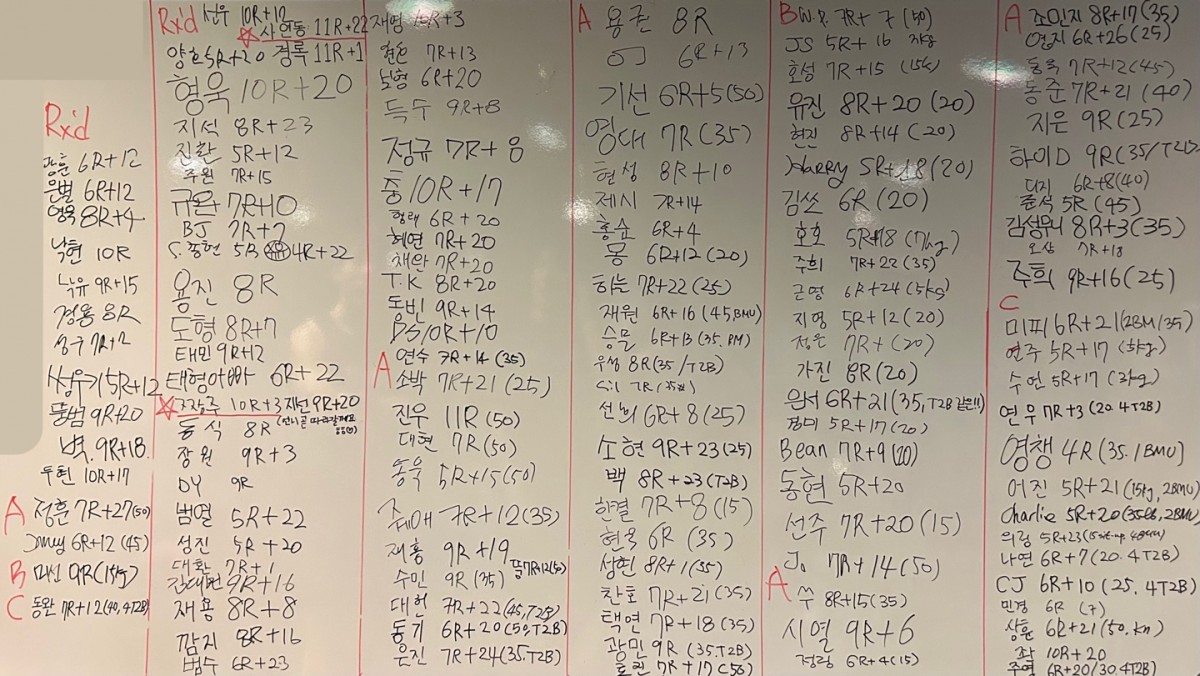 Rx'd
광훈 6R+12
은별 6R+12
영욱 8R+4
낙현 10R
낙유 9R+15
경용 8R
성구 7R+2
15R+12
9R+20
벽. 9R+18
두현 10R+17
A 정훈 7R+27(50)
6R+12 (45)
B 미선 9R(15kg)
C 동완 7R+12(40, 4T2B)
Rx'd 선우 10R+12
사연동 11R+22
양호 5R+20 경록 11R+1
형욱 10R+20
지석 8R+23
진환 5R+12
주원 7R+15
규완 7R+10
BJ 7R+7
S. 종현 5R 4R+22
용진 8R
도형 8R+7
태민 9R+12
태형아빠 6R+22
장주 10R+3 재선 9R+20
동식 8R
장원 9R+3
DY 9R
범열 5R+22
성진 5R+20
대환 7R+1
김대현 9R+16
재용 8R+8
깜지 8R+16
범수 6R+23
재영 15R+3
7R+13
보형 6R+20
득수 9R+8
정규 7R+8
충 10R+17
형래 6R+20
혜연 7R+20
채완 7R+20
T.K 8R+20
동빈 9R+14
DS 10R+10
A 연수 7R+14 (35)
소박 7R+21 (25)
진우 11R (50)
대현 7R (50)
동욱 5R+15(50)
7R+12(35)
재홍 9R+19
수민 9R (35)
대헌 7R+22(45, T2B)
동기 6R+20(50, T2B)
윤진 7R+24(35.T2B)
A 용준 8R
OJ 6R+13
기선 6R+5(50)
영대 7R (35)
현성 8R+10
제시 7R+14
홍순 6R+4
몽 6R+12(20)
하늘 7R+22(25)
재원 6R+16 (45, BMU)
승모 6R+13 (35. PM)
우성 8R(35/T2B)
Sil 7R
선뇌 6R+8(25)
소현 9R+23(25)
백 8R+23(T2B)
한결 7R+8(15)
현욱 6R (35)
성현 8R+1(35)
찬호 7R+21(35)
택연 7R+18 (35)
광민 9R (35.T2B)
7R+17(50)
B W.P. 7R+7(50)
JS 5R+16
호성 7R+15 (15kg)
유진 8R+20 (20)
현진 8R+14 (20)
Harry 5R+18(20)
김쏘 6R (20)
호호 5R+18 (7kg)
주희 7R+22(35)
근영 6R+24(5kg)
지영 5R+12(20)
정은 7R+ (20)
가진 8R(20)
원서 6R+21(35, T2B 같은!!)
정미 5R+17(20)
Bean 7R+9(20)
동현 5R+20
선주 7R+20 (15)
J. 7R+14(50)
A 쑤 8R+15(35)
시열 9R+6
정림 6R+4(15)
A 조민지 8R+17(35)
영지 6R+26(25)
동욱 7R+12(45)
동준 7R+21 (40)
지은 9R(25)
하이D 9R(35/T2B)
대지 6R+8(40)
준석 5R (45)
김성원 8R+3(35)
오상 7R+18
주희 9R+16(25)
C
미피 6R+21(2BM/35)
연주 5R+17 (5kg)
수연 5R+17 (3kg)
연우 7R+3 (20. 4T2B)
영챙 4R(35. 1BMU)
어진 5R+21(15kg, 2BMU)
Charlie 5R+20(35lb, 2BMU)
의링 5R+23
나연 6R+7(20. 4T2B)
CJ 6R+10(25. 4T2B)
민경 6R (7)
상훈 6R+21(50. kn)
좌 10R+20
주영 6R+20/30.4T2B)